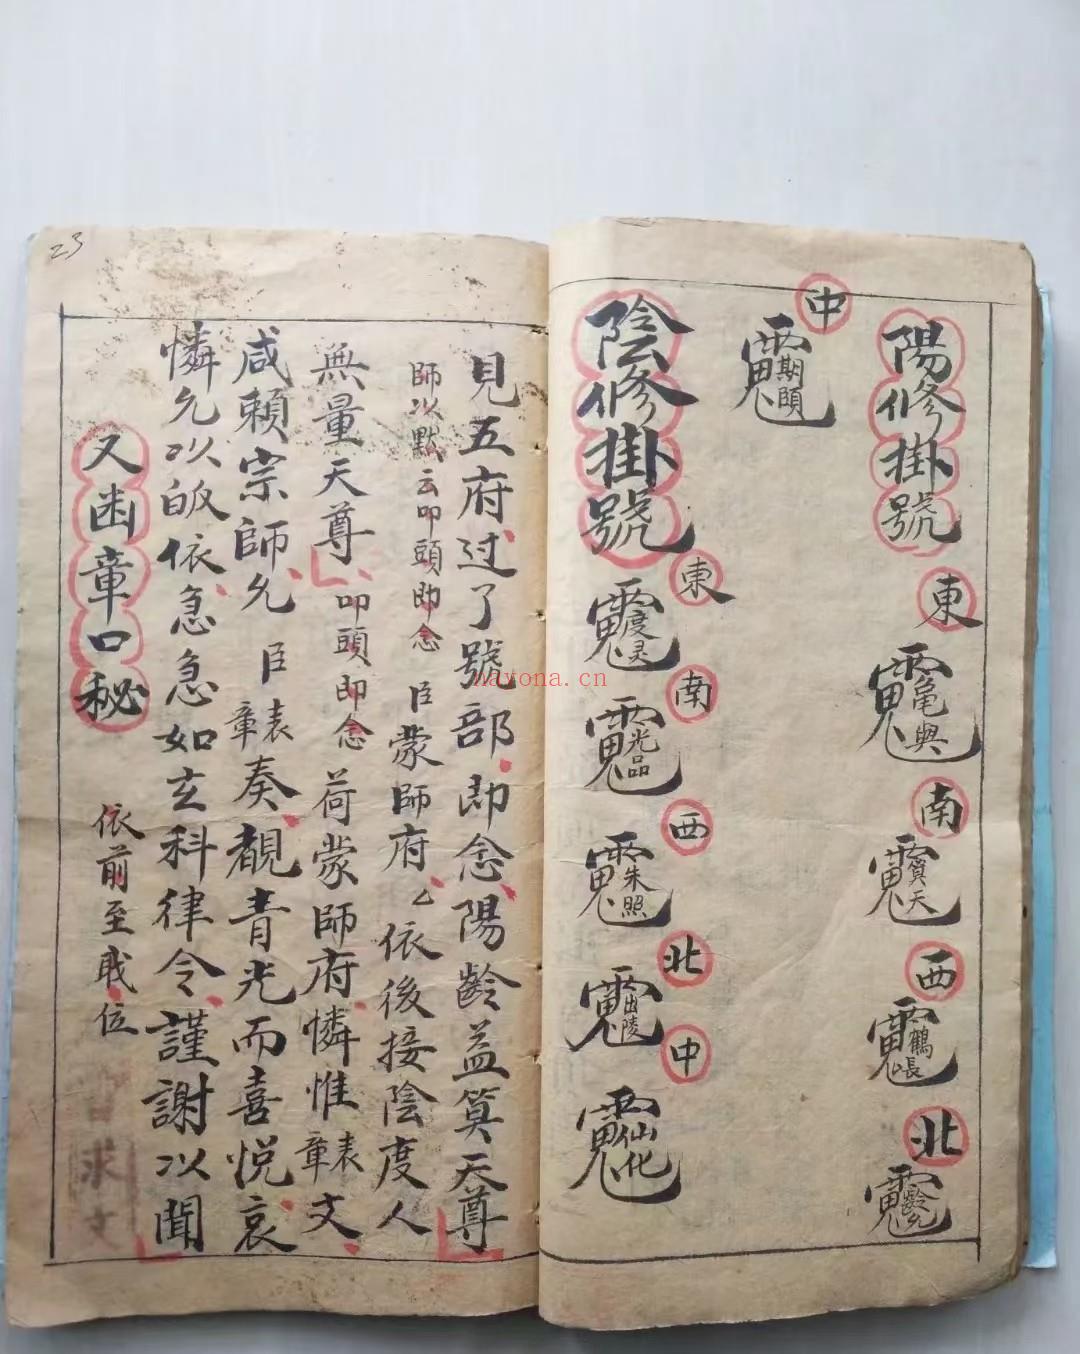 陽修掛號
東
龜與
南
算天
西
鶴長
北
齡允
中
期頤
陰修掛號
東
度灵
南
光品
西
朱照
北
由陵
中
仙化
見五府过了號部即念陽齡益筭天尊
師以默云叩頭即念 臣蒙師府厶依後接陰度人
無量天尊 叩頭即念 荷蒙師府憐惟章表文
咸賴宗師允 臣 章表奏覩青光而喜悅哀
憐允以皈依急急如玄科律令謹謝以聞
又凾章口秘 依前至戢位
23
nayona.cn